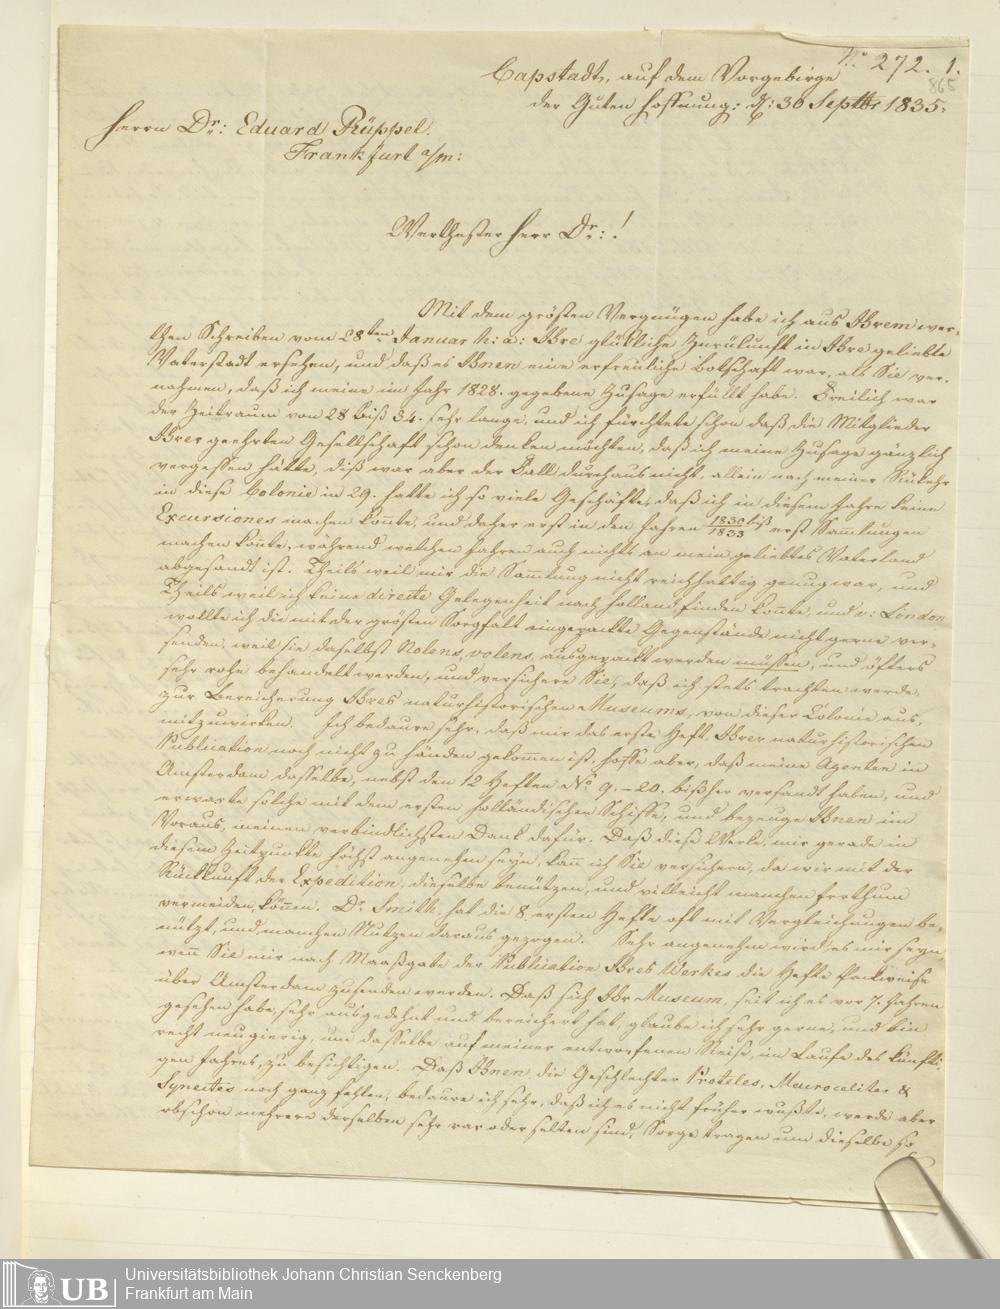 No 272. 1.
865
Capstadt, auf dem Vorgebirge
der Guten Hoffnung; d: 30 Septbr 1835.
Herrn Dr: Eduard Rüppel.
Frankfurt a/m:
Werthester Herr Dr: !
Mit dem grösten Vergnügen habe ich aus Ihrem wer-
then Schreiben vom 28ten Januar h: a: Ihre glükliche Zurükunft in Ihre geliebte
Vaterstadt ersehen, und daß es Ihnen eine erfreuliche Botschaft war, als Sie ver-
nahmen, daß ich meine im Jahr 1828. gegebene Zusage erfüllt habe. Freilich war
der Zeitraum von 28 biß 34. sehr lange, und ich fürchtete schon daß die Mitglieder
Ihrer geehrten Gesellschaft schon denken möchten, daß ich meine Zusage gänzlich
vergessen hätte, diß war aber der Fall durchaus nicht, allein nach meiner Rükkehr
in diese Colonie in 29. hatte ich so viele Geschäfte, daß ich in diesem Jahre keine
Excursiones machen konte, und daher erst in den Jahren 1830 biß 1833 erst Samlungen
machen konte, während welchen Jahren auch nichts an mein geliebtes Vaterland
abgesandt ist. Theils weil mir die Samlung nicht reichhaltig genug war, und
Theils weil ich keine directe Gelegenheit nach Holland finden konte, und v: London
wollte ich die mit der grösten Sorgfalt eingepackte Gegenstände nicht gerne ver-
senden, weil sie daselbst Nolens, volens, ausgepackt werden müssen, und öfters
sehr rohe behandelt werden, und versichere Sie, daß ich stets trachten werde,
zur Bereicherung Ihres naturhistorischen Museums, von dieser Colonie aus,
mitzuwirken. Ich bedaure sehr, daß mir das erste Heft Ihrer naturhistorischen
Publication noch nicht zu Händen gekommen ist, hoffe aber, daß meine Agenten in
Amsterdam dasselbe, nebst den 12 Heften No 9.–20. bißher versandt haben, und
erwarte solche mit dem ersten holländischen Schiffe, und bezeuge Ihnen im
Voraus, meinen verbindlichsten Dank dafür. Daß diese Werke, mir gerade in
diesem Zeitpunkte höchst angenehm seyn, kann ich Sie versichern, da wir mit der
Rückkunft der Expedition, dieselbe benützen, und villeicht manchen Irrthum
vermeiden könen. Dr Smith hat die 8 ersten Hefte oft mit Vergleichungen be-
nützt, und manchen Nützen daraus gezogen. Sehr angenehm wird es mir seyn,
wen Sie mir nach Maaßgabe der Publication Ihres Werkes die Hefte
über Amsterdam zusenden werden. Daß sich Ihr Museum, seit ich es vor 7. Jahren
gesehen habe, sehr ausgedehnt und bereichert hat, glaube ich sehr gerne, und bin
recht neugierig, um dasselbe auf meiner entworfenen Reise, im Laufe des künfti-
gen Jahres, zu besichtigen. Daß Ihnen die Geschlechter Proteles, Macroceliter &
noch ganz fehlen, bedaure ich sehr, daß ich es nicht früher wußte, werde aber
obschon mehrere derselben sehr rar oder selten sind, Sorge tragen um dieselbe so
Universitätsbibliothek Johann Christian Senckenberg
Frankfurt am Main
UB